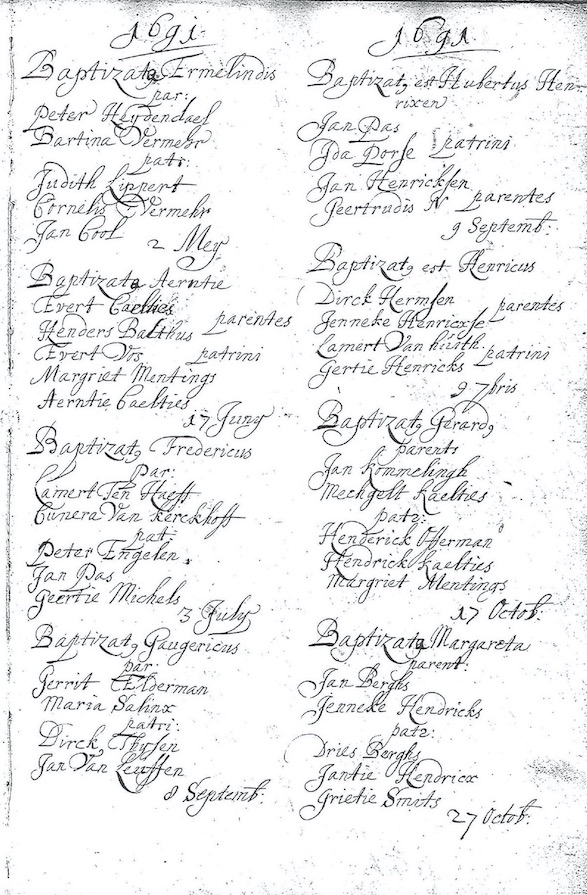 1691.
Baptizata Ermelindis
par:
Peter Heydendael
Bartina Vermehr
patr:
Judith Lippert
Cornelis Vermehr
Jan Cool
2 Mey.
Baptizata Aerntie
Evert Caelties
Henders Balthus parentes
Evert Vos patrini
Margriet Mentings
Aerntie Caelties
17 Juny
Baptizatꝯ Fredericus
par:
Lamert Ten Haeff
Cunera Van Kerckhoff
pat:
Peter Engelen.
Jan Pas
Geertie Michels
3 July
Baptizatꝯ Gaugericus
par:
Gerrit Elderman
Maria Salinx
patri:
Dirck Thysen
Jan Van Leuffen
8 Septemb:
1691
Baptizatꝯ est Hubertus Hen-
rixen
Jan Pas
Ida Dorse patrini
Jan Henricksen
Geertrudis N parentes
9 Septemb:
Baptizatꝯ est Henricus
Dirck Hermsen
Jenneke Henricxse parentes
Lamert Van
Gertie Henricks patrini
9 7bris
Baptizatꝯ Gerardꝯ
parents
Jan Kommelingh
Mechgelt Kaelties
patr:
Henderick Herman
Hendrick Kaelties
Margriet Mentings
17 Octob:
Baptizata Margareta
parent:
Jan Berghs
Jenneke Hendricks
patr:
Dries Berghs
Jantie Hendricx
Grietie Smits
27 Octob: